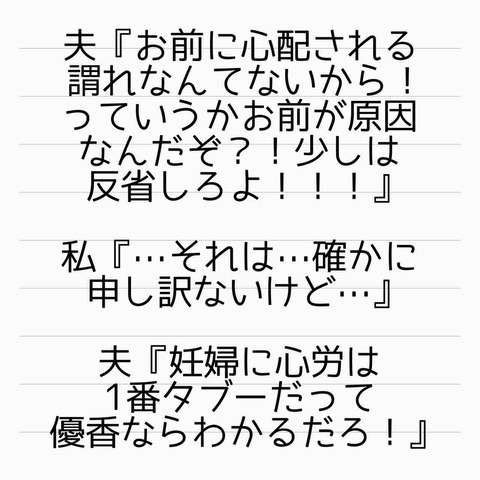 夫『お前に心配される
謂れなんてないから！
っていうかお前が原因
なんだぞ？！少しは
反省しろよ！！！』
私『…それは…確かに
申し訳ないけど…』
夫『妊婦に心労は
1番タブーだって
優香ならわかるだろ！』